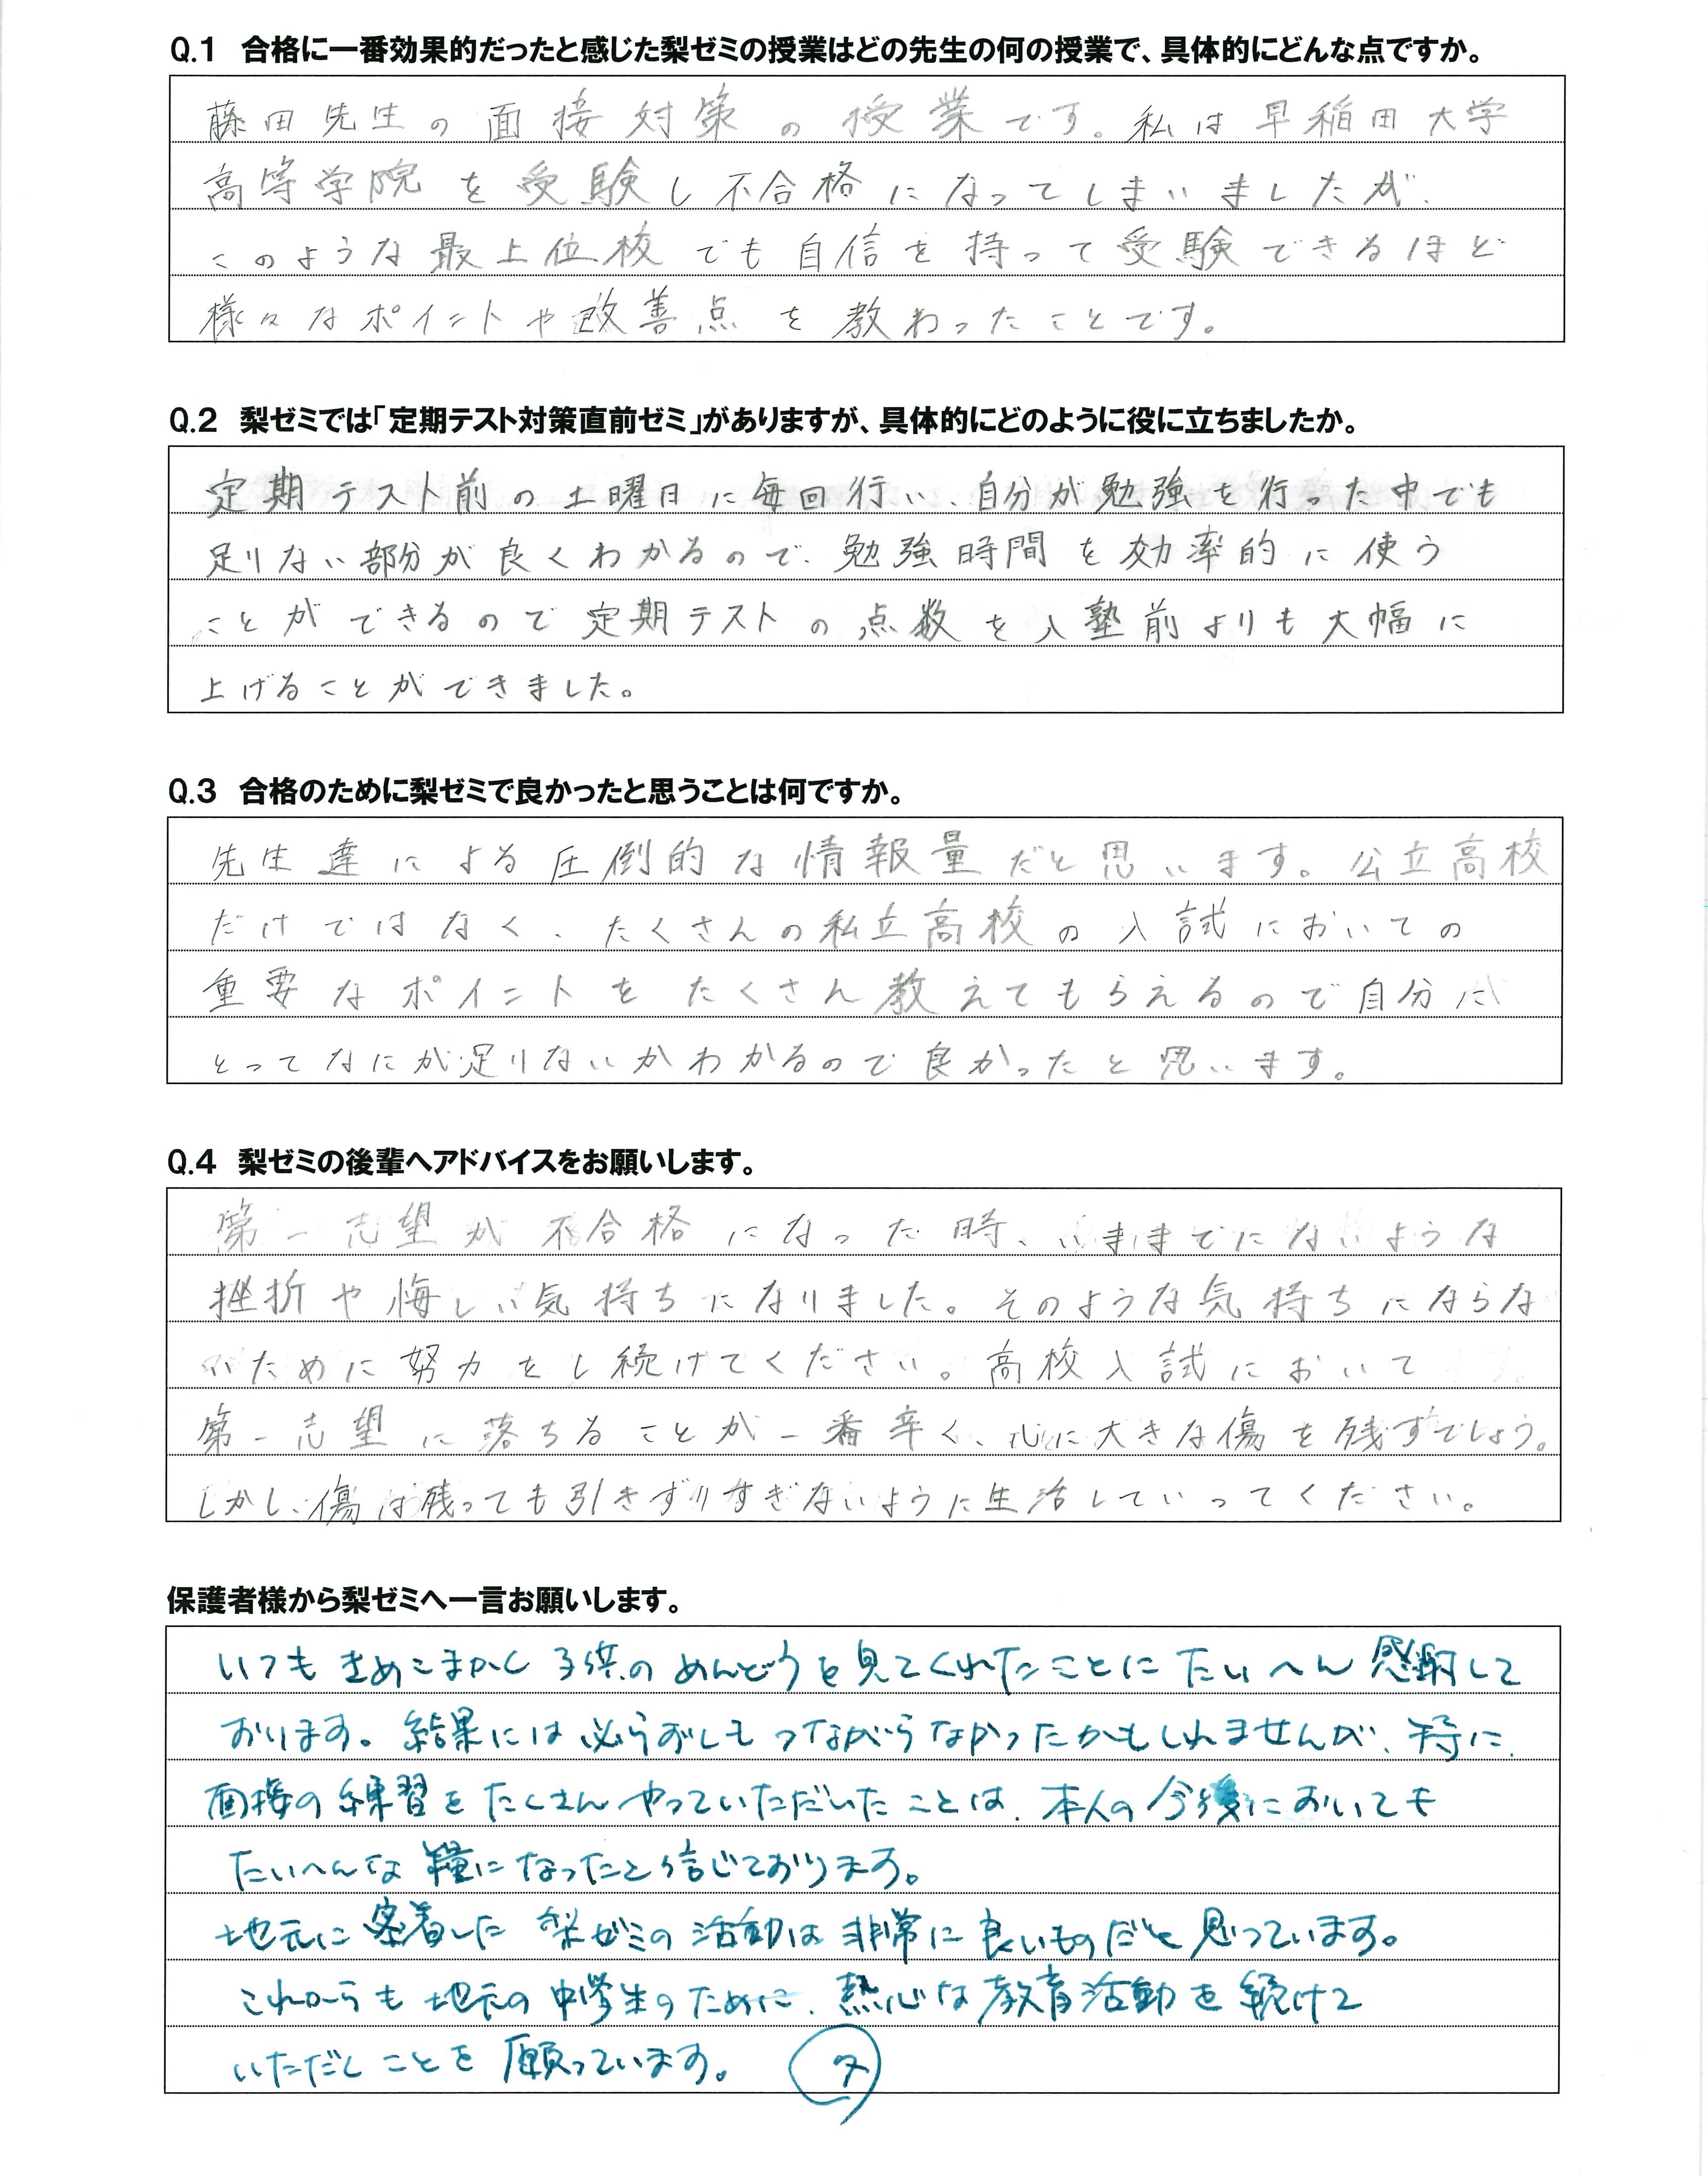 Q.1 合格に一番効果的だったと感じた梨ゼミの授業はどの先生の何の授業で、具体的にどんな点ですか。
藤田先生の面接対策の授業です。私は早稲田大学
高等学院を受験し不合格になってしまいましたが、
このような最上位校でも自信を持って受験できるほど
様々なポイントや改善点を教わったことです。
Q.2 梨ゼミでは「定期テスト対策直前ゼミ」がありますが、具体的にどのように役に立ちましたか。
定期テスト前の土曜日に毎回行い、自分が勉強を行った中でも
足りない部分が良くわかるので、勉強時間を効率的に使う
ことができるので定期テストの点数を入塾前よりも大幅に
上げることができました。
Q.3 合格のために梨ゼミで良かったと思うことは何ですか。
先生達による圧倒的な情報量だと思います。公立高校
だけではなく、たくさんの私立高校の入試においての
重要なポイントをたくさん教えてもらえるので自分に
とってなにが足りないかわかるので良かったと思います。
Q.4 梨ゼミの後輩へアドバイスをお願いします。
第一志望が不合格になった時、いままでにないような
挫折や悔しい気持ちになりました。そのような気持ちにならな
いために努力をし続けてください。高校入試において
第一志望に落ちることが一番辛く、心に大きな傷を残すでしょう。
しかし、傷は残っても引きずりすぎないように生活していってください。
保護者様から梨ゼミへ一言お願いします。
いつもきめこまかく子供のめんどうを見てくれたことにたいへん感謝して
おります。結果には必らずしもつながらなかったかもしれませんが、特に、
面接の練習をたくさんやっていただいたことは、本人の今後においても
たいへんな糧になったと信じております。
地元に密着した梨ゼミの活動は非常に良いものだと思っています。
これからも地元の中学生のために、熱心な教育活動を続けて
いただくことを願っています。